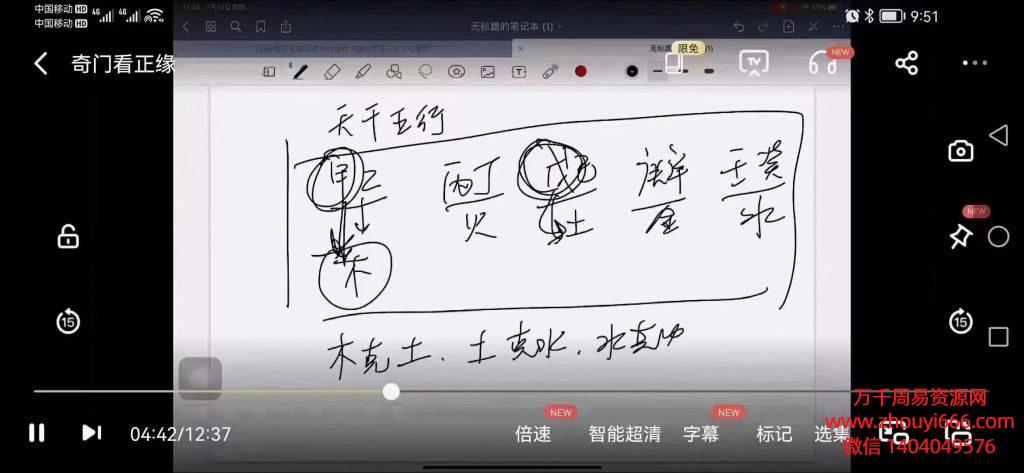 中国移动 HD 4G 4G
中国移动 HD
9:51
11:25 7月15日周四
69%
无标题的笔记本 (1)
奇门看正缘
限免
NEW
天干五行
甲乙 丙丁 戊己 庚辛 壬癸
木 火 土 金 水
木克土、土克水、水克
NEW
15
15
04:42/12:37
NEW
NEW
倍速 智能超清 字幕 标记 选集
万千周易资源网
www.zhouyi666.com
微信 1404049576